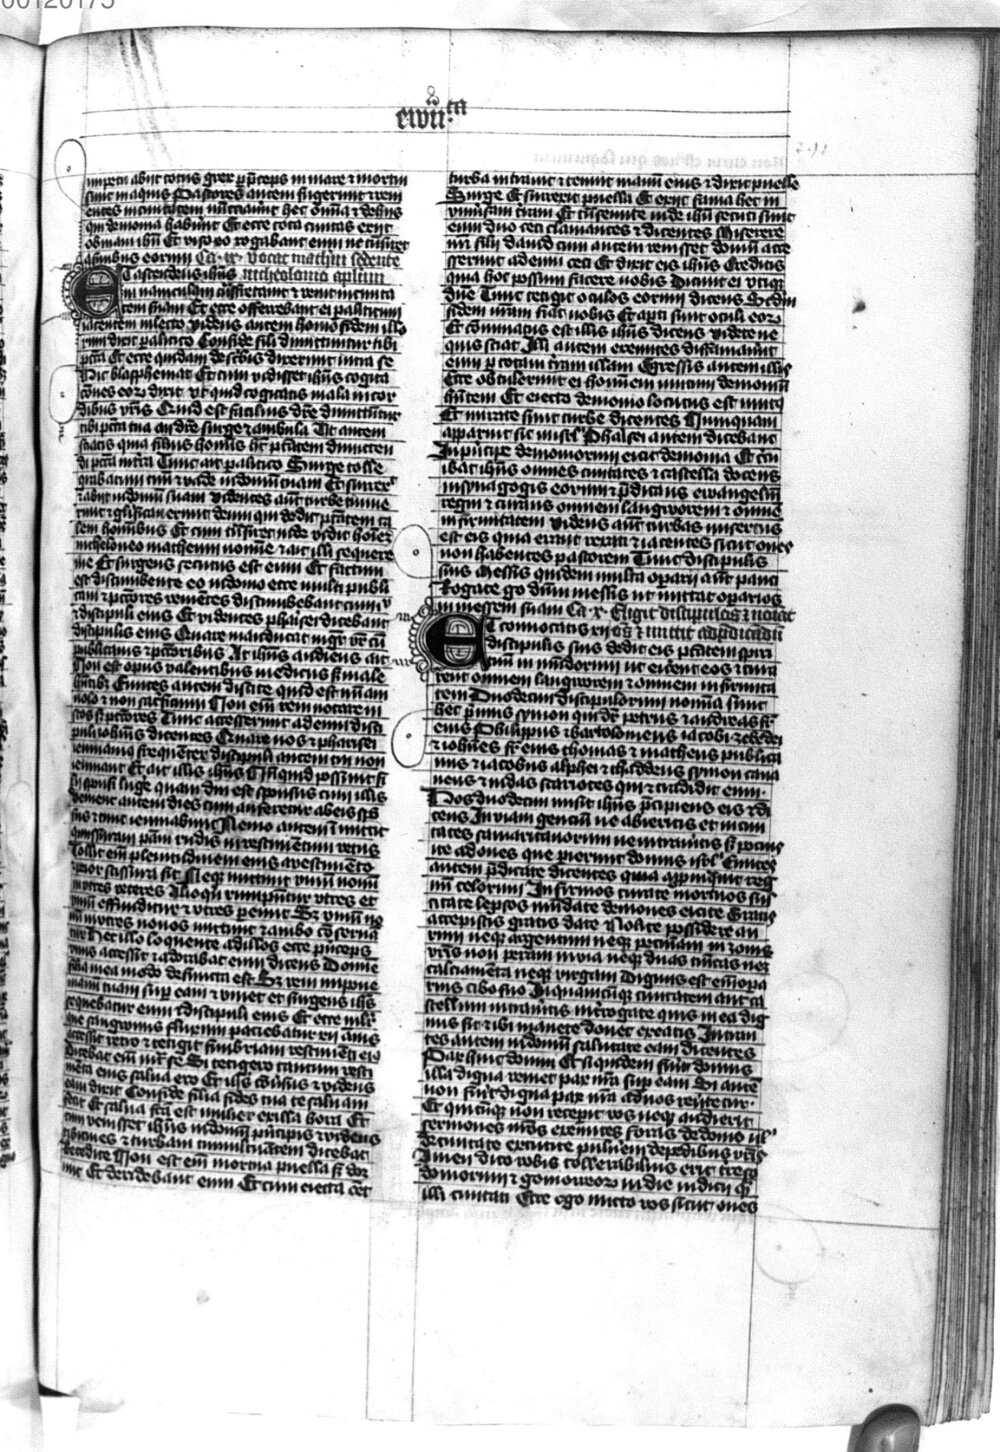 00120175
ewu͞.ta
impetu abiit totus grex p̄ceps in mare ⁊ mortui
sunt in aquis Pastores autem fugerunt ⁊ veni
entes in ciuitatem nūciauit hec om̄ia ⁊ de hiis
qui demonia habūnt Et ecce tota ciuitas exiit
obuiam ihū Et viso eo rogabant eum ut t̄nsiret
a finibus eorum Ca. ix. vocat mathm̄ sedente
ET ascendens ihūs in theoloneo aplum
in nauiculam t̄nsfretauit ⁊ venit in ciuita
tem suam Et ecce offerebant ei paliticum
iacentem in lecto videns autem ihūs fidem illo
rum dixit palitico Confide fili dimittuntur tibi
pctā Et ecce quidam de scribis dixerunt intra se
Hic blasphemat Et cum vidisset ihūs cogita
cōnes eoꝝ dixit Vt quid cogitatis mala in cor
dibus vr̄is Quid est facilius dic̄e dimittūtur
tibi pctā tua an dic̄e surge ⁊ ambula Vt autem
sciatis quia filius homīs ht̄ ptātem dimitten
di pctā in t̄ra Tunc ait palitico Surge tolle
grabatum tuū ⁊ vade in domū tuam Et surrex͛
⁊ abiit in domū suam Videntes aūt turbe timue
runt ⁊ glificauerunt deum qui dedit ptātem ta
lem homībus Et cum t̄nsiret inde vidit hoīem
in theloneo matheum noīe ⁊ ait illi sequere
me Et surgens secutus est eum Et factum
est discumbente eo in domo ecce multi publi
cani ⁊ pctōres venientes discumbebant cum ih̄u
⁊ discipuli eius Et videntes pharisei dicebant
discipulis eius Quare manducat mgr̄ vr̄ cū
publicanis ⁊ pctōribus At ihūs audiens ait
Non est opus valentibus medicus s͛ male
hn̄tibꝫ Euntes autem discite quid est mīam
volo ⁊ non sacficium Non em̄ veni vocare iu
stos s͛ pctōres Tunc accesserunt ad eum disci
puli iohīs dicentes Quare nos ⁊ pharisei
ieiunamꝰ frequēter discipuli autem tui non
ieiunant Et ait illis ihūs Nūquid possunt f̄
lii sponsi luge quam diu est sponsus cum illis
Venient autem dies cum auferetur ab eis spō
sus ⁊ tunc ieiunabunt Nemo autem īmittit
comissuram pāni rudis in vestimētum vetus
Tollit em̄ plenitudinem eius a vestimēto
⁊ peior scissura fit Neqꝫ mittunt vinū nouū
in vtres veteres Alioqn̄ rumpūtur vtres et
vinū effunditur ⁊ vtres pereūt Sꝫ vinū no
uū in vtres nouos mittunt ⁊ ambo cōserua
tur Hec illo loquente ad illos ecce p̄nceps
vnus accessit ⁊ adorabat eum dicens Domine
filia mea modo defuncta est Sꝫ veni impone
manū tuam sup̄ eam ⁊ viuet et surgens ihs̄
sequebatur eum ⁊ discipuli eius Et ecce mulr̄
que sanguinis fluxum paciebatur xij annis
accessit retro ⁊ tetigit fimbriam vestimēti eiꝰ
Dicebat em̄ intr̄ se Si tetigero tantum vesti
mētū eius salua ero Et ihs̄ cōuersus ⁊ videns
eam dixit Confide filia fides tua te saluam
fecit Et salua fctā est mulier ex illa hora Et
cum venisset ihūs in domū p̄ncipis ⁊ vidisset
tibicines ⁊ turbam tumultuātem dicebat
Recedite Non est em̄ mortua puella s͛ dor
mit Et deridebant eum Et cum eiecta eēt
turba intrauit ⁊ tenuit manū eius ⁊ dixit puelle
Surge Et surrexit puella Et exiit fama hec in
vniūsam tr̄am Et t̄nseunte inde ihū secuti sunt
eum duo ceci clamantes ⁊ dicentes Miserere
nr̄i fili dauid cum autem venisset domū acce
sserunt ad eum ceci Et dixit eis ihūs Creditis
quia hoc possum facere vobis Dicunt ei vtiqꝫ
dn̄e Tunc tetigit oculos eorum dicens Scd̄m
fidem vram fiat vobis Et apti sunt oculi eoꝝ
Et cōminatus est illis ihūs dicens videte ne
quis sciat Illi autem exeuntes diffamauūt
eum p totam tr̄am illam Egressis autem illis
Ecce obtulerunt ei hoīem mutum demoniū
hn̄tem Et eiecto demonio locutus est mutꝰ
Et mirate sunt turbe dicentes Nunquam
apparuit sic in isrl̄ Pharisei autem dicebant
In p̄ncipe demoniorum eicit demonia Et circū
ibat ihūs omnes ciuitates ⁊ castella docens
in synagogis eorum ⁊ p̄dicans ewangeliū
regni ⁊ curans omnem languorem ⁊ omnē
infirmitatem Videns aūt turbas misertus
est eis quia erant vexati ⁊ iacentes sicut oues
non habentes pastorem Tunc discipulis
suis Messis quidem multa oparii aūt pauci
Rogate go dn̄m messis ut mittat oparios
in messem suam Ca. x. Eligit discipulos ⁊ notat
ET conuocatis xij eos ⁊ mittit ad p̄dicādū
discipulis suis dedit eis ptātem spiri
tuū inmundorum ut eicerent eos ⁊ cura
rent omnem languorem ⁊ omnem infirmita
tem Duodecim discipulorum nomīa sunt
hec p̄mus symon qui dr̄ petrus ⁊ andreas fr̄
eius Philippus ⁊ bartolomeus iacobꝰ zebedei
⁊ iohēs fr̄ eius thomas ⁊ matheus publica
nus ⁊ iacobus alphei ⁊ thaddeus symon cana
neus ⁊ iudas scariotes qui ⁊ tradidit eum
Hos duodecim misit ihūs p̄cipiens eis ⁊ di
cens In viam gencium ne abieritis et in ciui
tates samaritanorum ne intraueritis s͛ pocius
ite ad oues que perierunt domus isrl̄ Euntes
autem p̄dicate dicentes quia appinquit reg
nū celorum Infirmos curate mortuos sus
citate leprosos mūdate demones eicite Gratis
accepistis gratis date Nolite possidere au
rum neqꝫ argentum neqꝫ pecuniam in zonis
vr̄is non peram in via neqꝫ duas tunicas neqꝫ
calciamēta neqꝫ virgam Dignus est em̄ opa
rius cibo suo In quamcūqꝫ ciuitatem aut ca
stellum intraueritis int̄rogate quis in ea dig
nus sit ⁊ ibi manete donec exeatis Intran
tes autem in domū salutate eam dicentes
Pax huic domui Et siquidem fuīt domus
illa digna veniet pax vr̄a sup̄ eam Si aūtē
non fuīt digna pax vr̄a ad vos reūtetur
Et quicūqꝫ non recepit vos neqꝫ audierit
sermones vr̄os exeuntes foras de domo ul̄
de ciuitate excutite puluem de pedibus vr̄is
Amen dico vobis tollerabilius erit terre
sodomorum ⁊ gomorreoꝝ in die iudicii q̄m
illi ciuitati Ecce ego mitto vos sicut oues